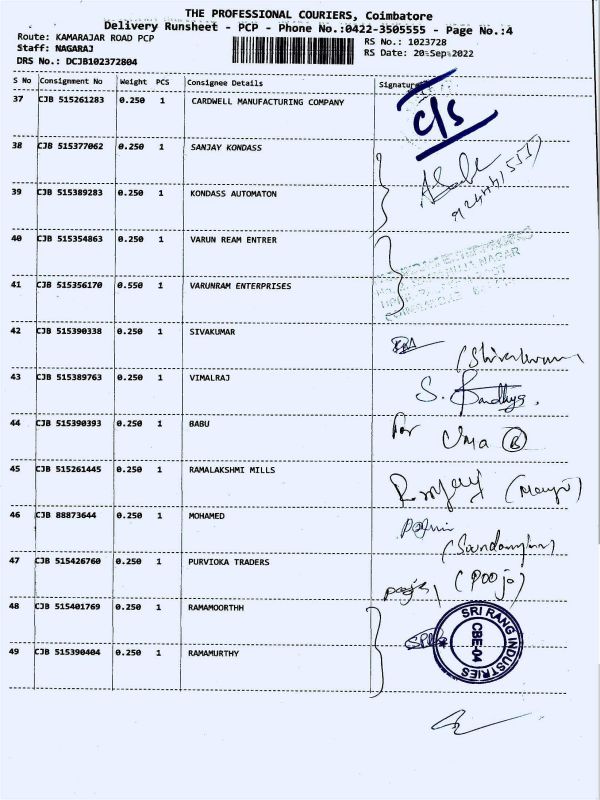 THE PROFESSIONAL COURIERS, Coimbatore
Delivery Runsheet - PCP - Phone No.:0422-3505555 - Page No.:4
Route: KAMARAJAR ROAD PCP
RS No.: 1023728
Staff: NAGARAJ
RS Date: 20-Sep-2022
DRS No.: DCJB102372804
S No Consignment No Weight PCS Consignee Details Signature
37 CJB 515261283 0.250 1 CARDWELL MANUFACTURING COMPANY
C/S
38 CJB 515377062 0.250 1 SANJAY KONDASS
39 CJB 515389283 0.250 1 KONDASS AUTOMATON
40 CJB 515354863 0.250 1 VARUN REAM ENTRER
41 CJB 515356170 0.550 1 VARUNRAM ENTERPRISES
42 CJB 515390338 0.250 1 SIVAKUMAR
43 CJB 515389763 0.250 1 VIMALRAJ
S. Sandhya.
44 CJB 515390393 0.250 1 BABU
for Uma B
45 CJB 515261445 0.250 1 RAMALAKSHMI MILLS
46 CJB 88873644 0.250 1 MOHAMED
47 CJB 515426760 0.250 1 PURVIOKA TRADERS
(Pooja)
48 CJB 515401769 0.250 1 RAMAMOORTHH
49 CJB 515390404 0.250 1 RAMAMURTHY
SRI RANG INDUSTRIES
CBE-04